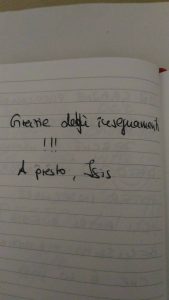 Grazie degli insegnamenti
!!!
A presto, Isis